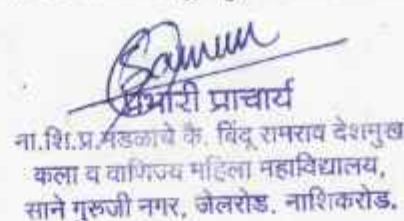 प्रभारी प्राचार्य
ना.शि.प्र.मंडळाचे कै. बिंदू रामराव देशमुख
कला व वाणिज्य महिला महाविद्यालय,
साने गुरुजी नगर, जेलरोड, नाशिकरोड.